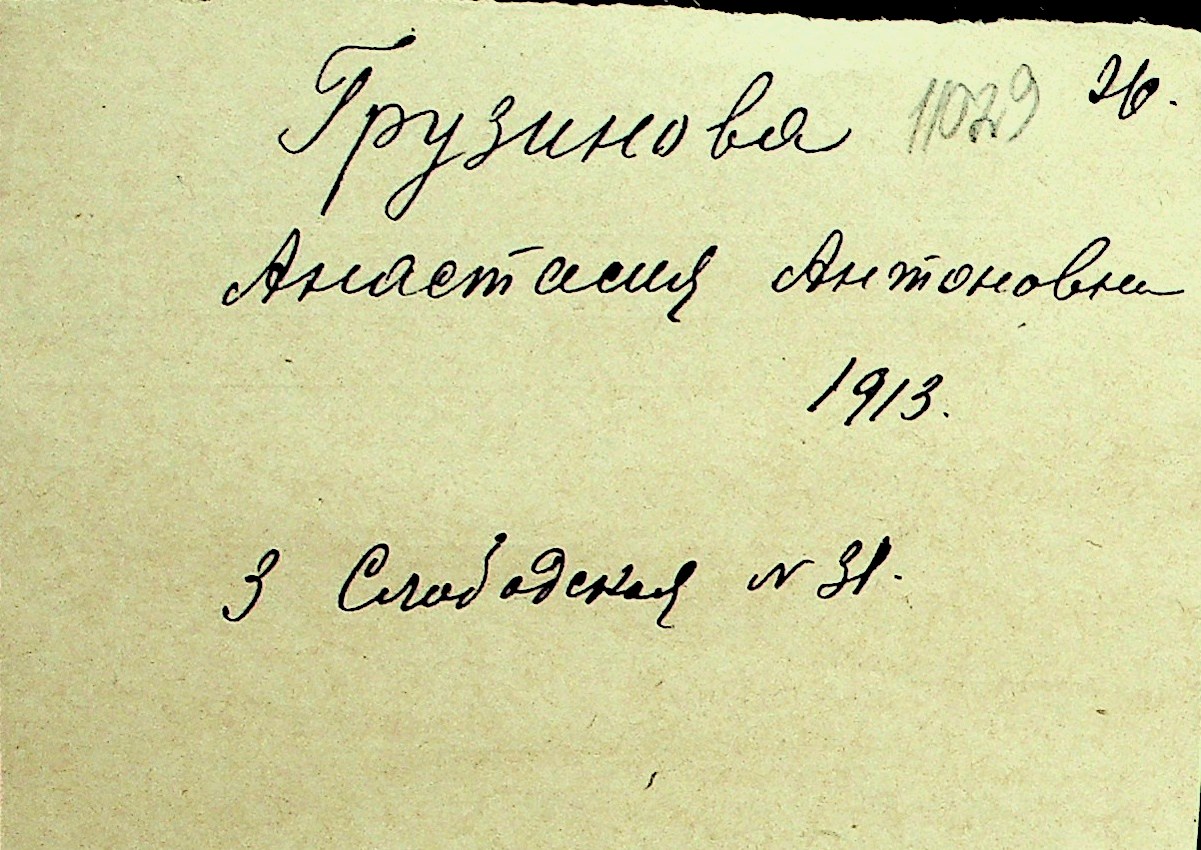 Грузинова 11029
Анастасия Антоновна
1913.
3 Слободская N 31.